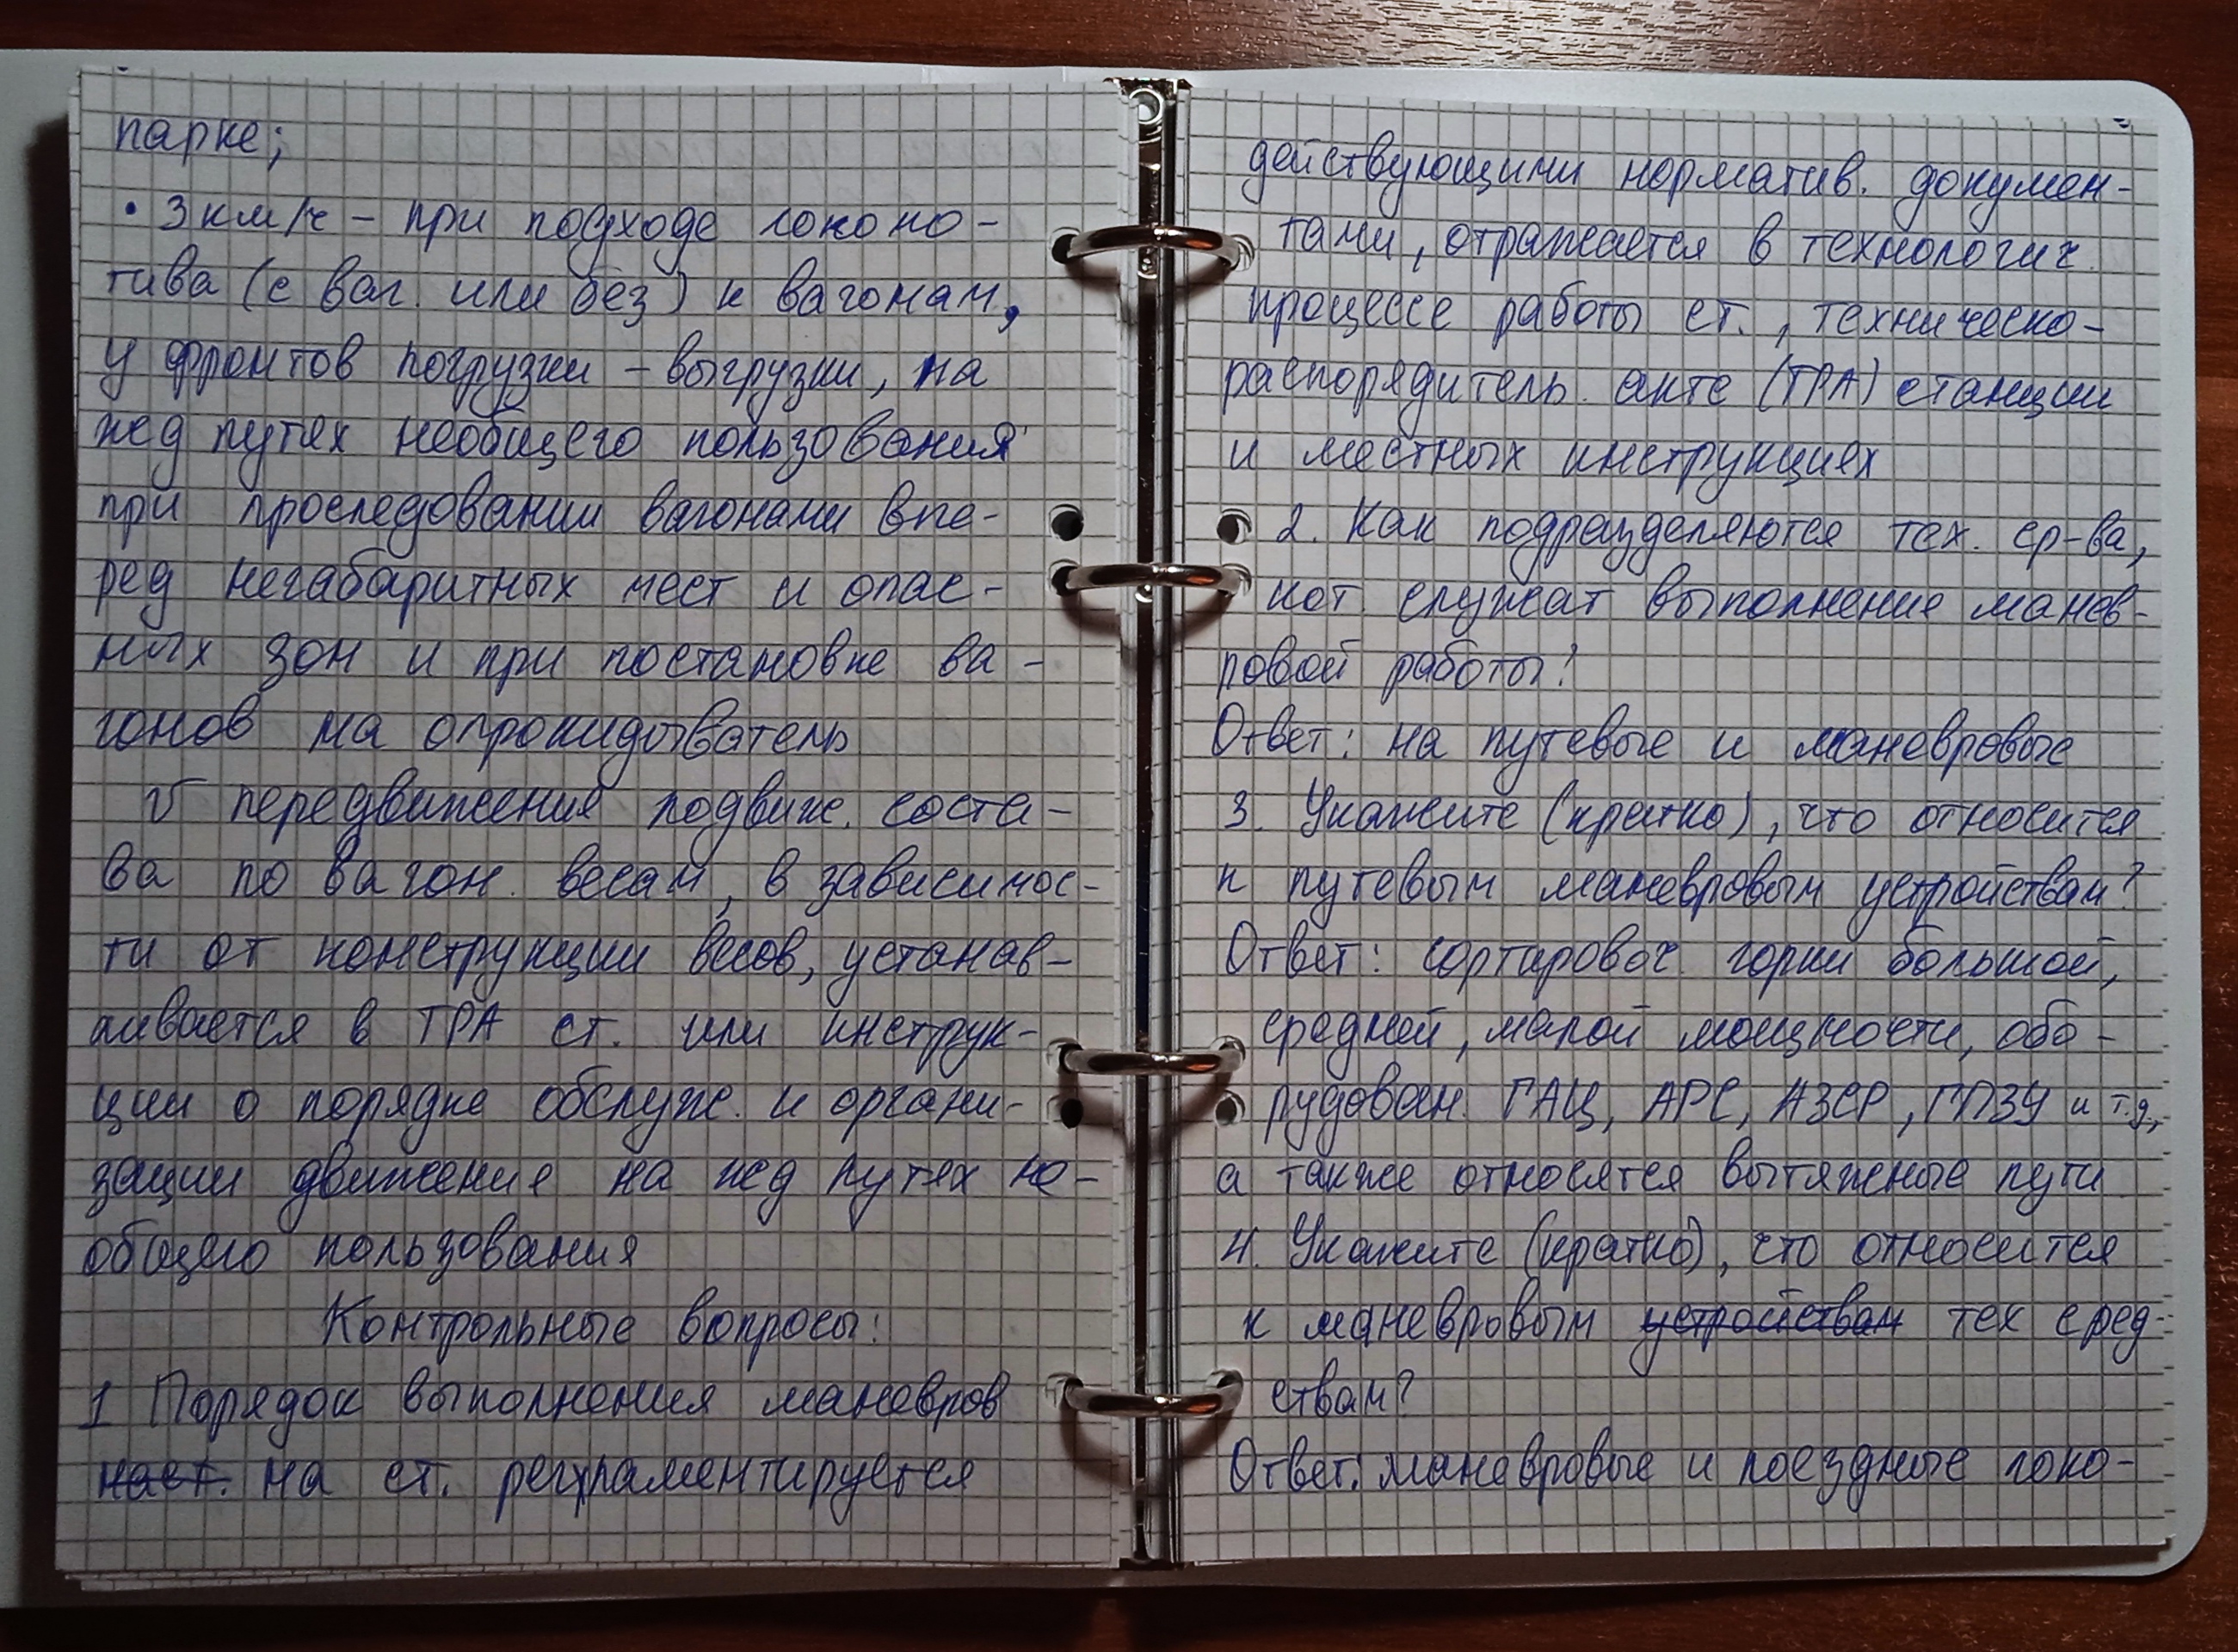 парке;
• 3 км/ч – при подходе локомо-
тива (с ваг. или без) к вагонам,
у фронтов погрузки – выгрузки, на
жед путях необщего пользования
при проследовании вагонами впе-
ред негабаритных мест и опас-
ных зон и при постановке ва-
гонов на опрокидыватель
V передвижения подвиж. соста-
ва по вагон. весам, в зависимос-
ти от конструкции весов, устанав-
ливается в ТРА ст. или инструк-
ции о порядке обслуж. и органи-
зации движение на жед путях не-
общего пользования
Контрольные вопросы:
1 Порядок выполнения маневров
наст. на ст. регламентируется
действующими норматив. докумен-
тами, отражается в технологич.
процессе работы ст., техническо-
распорядитель. акте (ТРА) станции
и местных инструкциях
2. Как подразделяются тех. ср-ва,
кот. служат выполнение манев-
ровой работы?
Ответ: на путевые и маневровые
3. Укажите (кратко), что относится
к путевым маневровым устройствам?
Ответ: сортировоч. горки большой,
средней, малой мощности, обо-
рудован. ГАЦ, АРС, АЗСР, ГПЗУ и т.д.,
а также относятся вытяжные пути
4. Укажите (кратко), что относится
к маневровым устройствам тех сред-
ствам?
Ответ: маневровые и поездные локо-